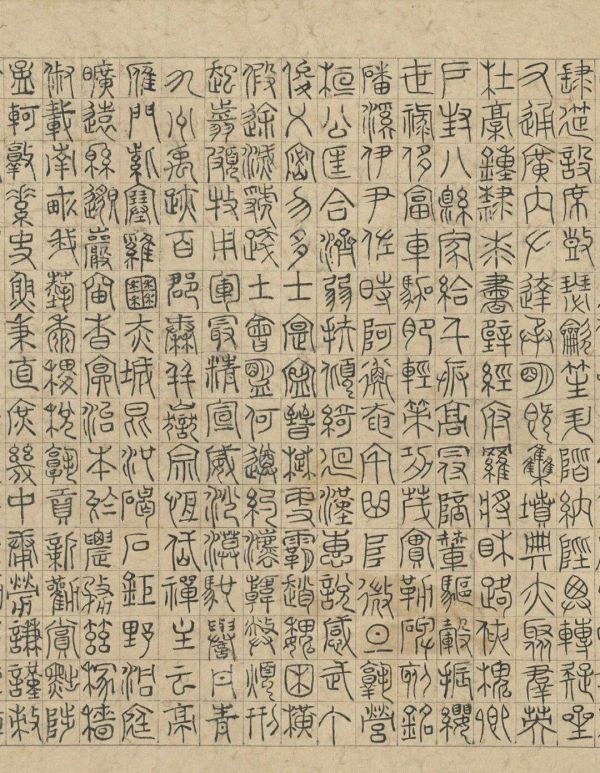 肆筵設席鼓瑟吹笙升階納陛弁轉疑星
右通廣內左達承明既集墳典亦聚群英
杜稾鍾隸漆書壁經府羅將相路俠槐卿
戶封八縣家給千兵高冠陪輦驅轂振纓
世祿侈富車駕肥輕策功茂實勒碑刻銘
磻溪伊尹佐時阿衡奄宅曲阜微旦孰營
桓公匡合濟弱扶傾綺迴漢惠說感武丁
俊乂密勿多士寔寧晉楚更霸趙魏困橫
假途滅虢踐土會盟何遵約法韓弊煩刑
起翦頗牧用軍最精宣威沙漠馳譽丹青
九州禹跡百郡秦并嶽宗恆岱禪主云亭
雁門紫塞雞田赤城昆池碣石鉅野洞庭
曠遠綿邈巖岫杳冥治本於農務茲稼穡
俶載南畝我藝黍稷稅孰貢新勸賞黜陟
孟軻敦素史魚秉直庶幾中庸勞謙謹敕